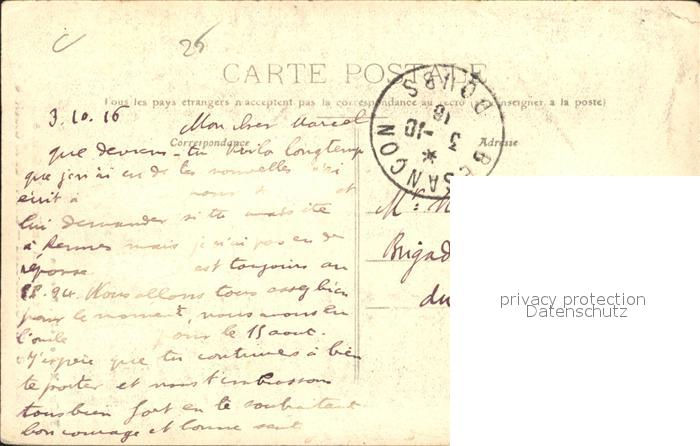 25
CARTE POSTALE
Tous les pays étrangers n'acceptent pas la correspondance au recto (Se renseigner à la poste)
Correspondance
Adresse
BESANCON
DOUBS
3 -10
16
3.10.16
Mon cher Marcel
que deviens-tu voila longtemps
que j'en ai eu de tes nouvelles j'ai
écrit à nous et
lui demander si tu avais été
à Rennes mais je n'ai pas eu de
réponse est toujours au
Nous allons tous assez bien
pour le moment, nous avons eu
pour le 15 aout.
J'espère que tu continues à bien
te porter et nous t'embrassons
tous bien fort en te souhaitant
bon courage et bonne santé
Mr
Brigad
du
privacy protection
Datenschutz